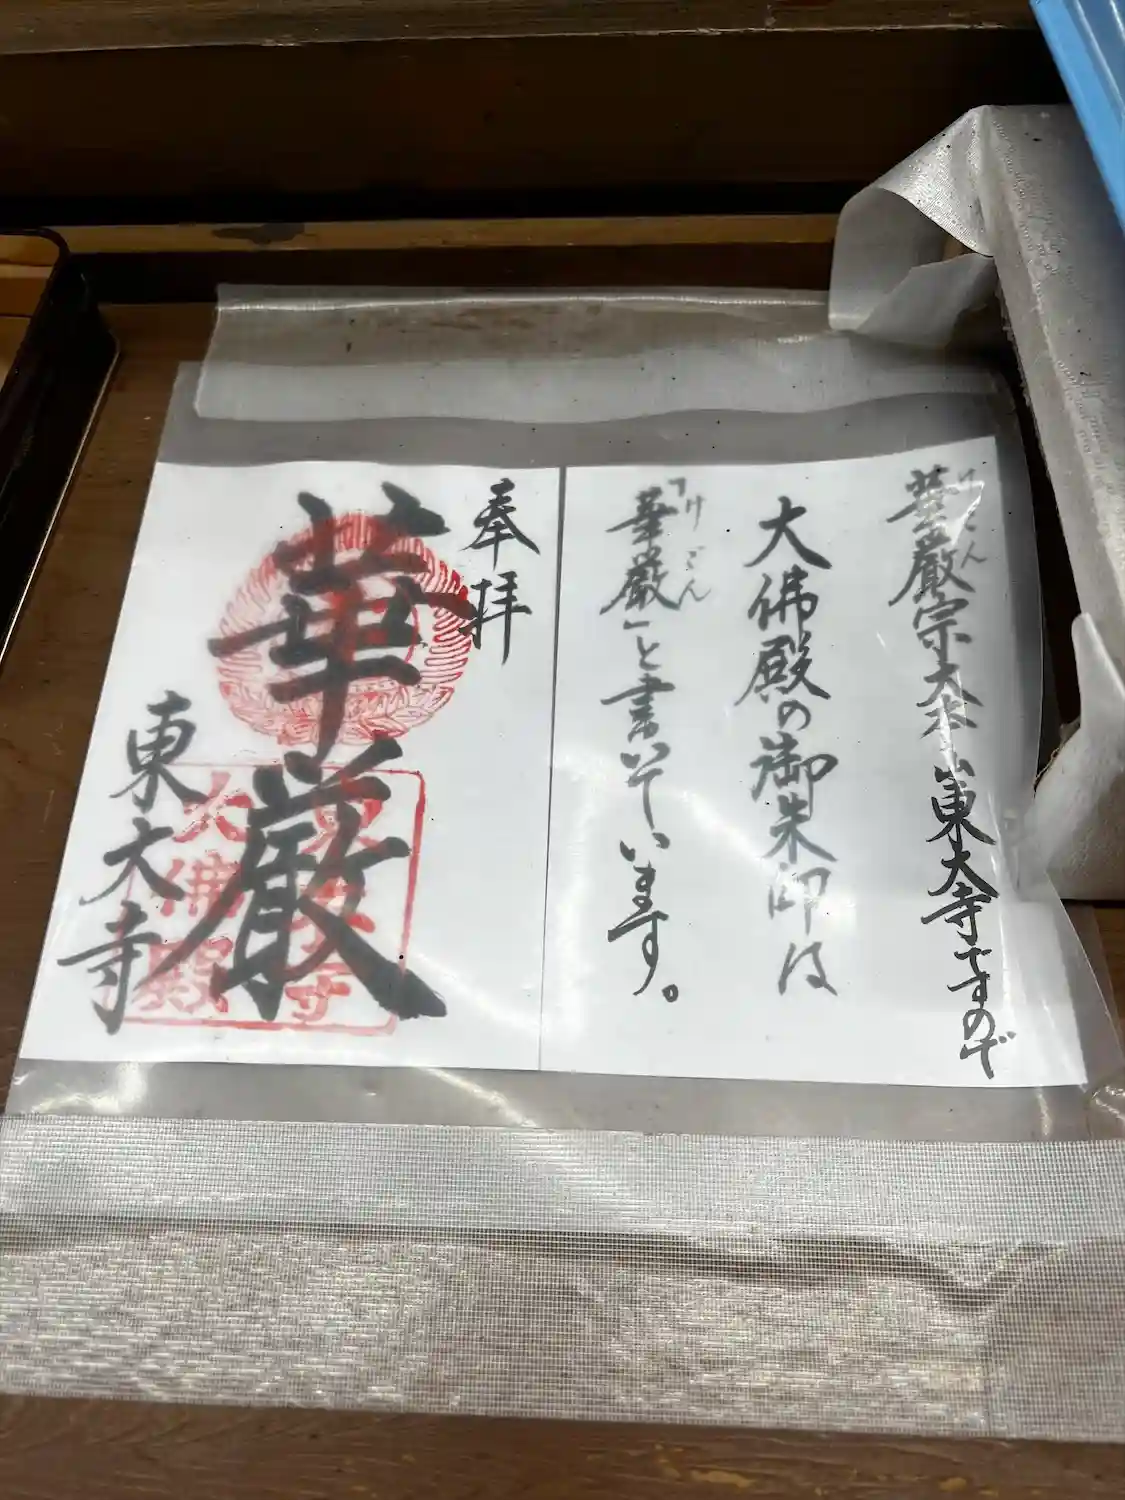 華厳宗大本山東大寺ですので
けごん
大佛殿の御朱印は
「華厳」と書いています。
けごん
奉拝
華厳
東大寺
東大寺
大佛殿